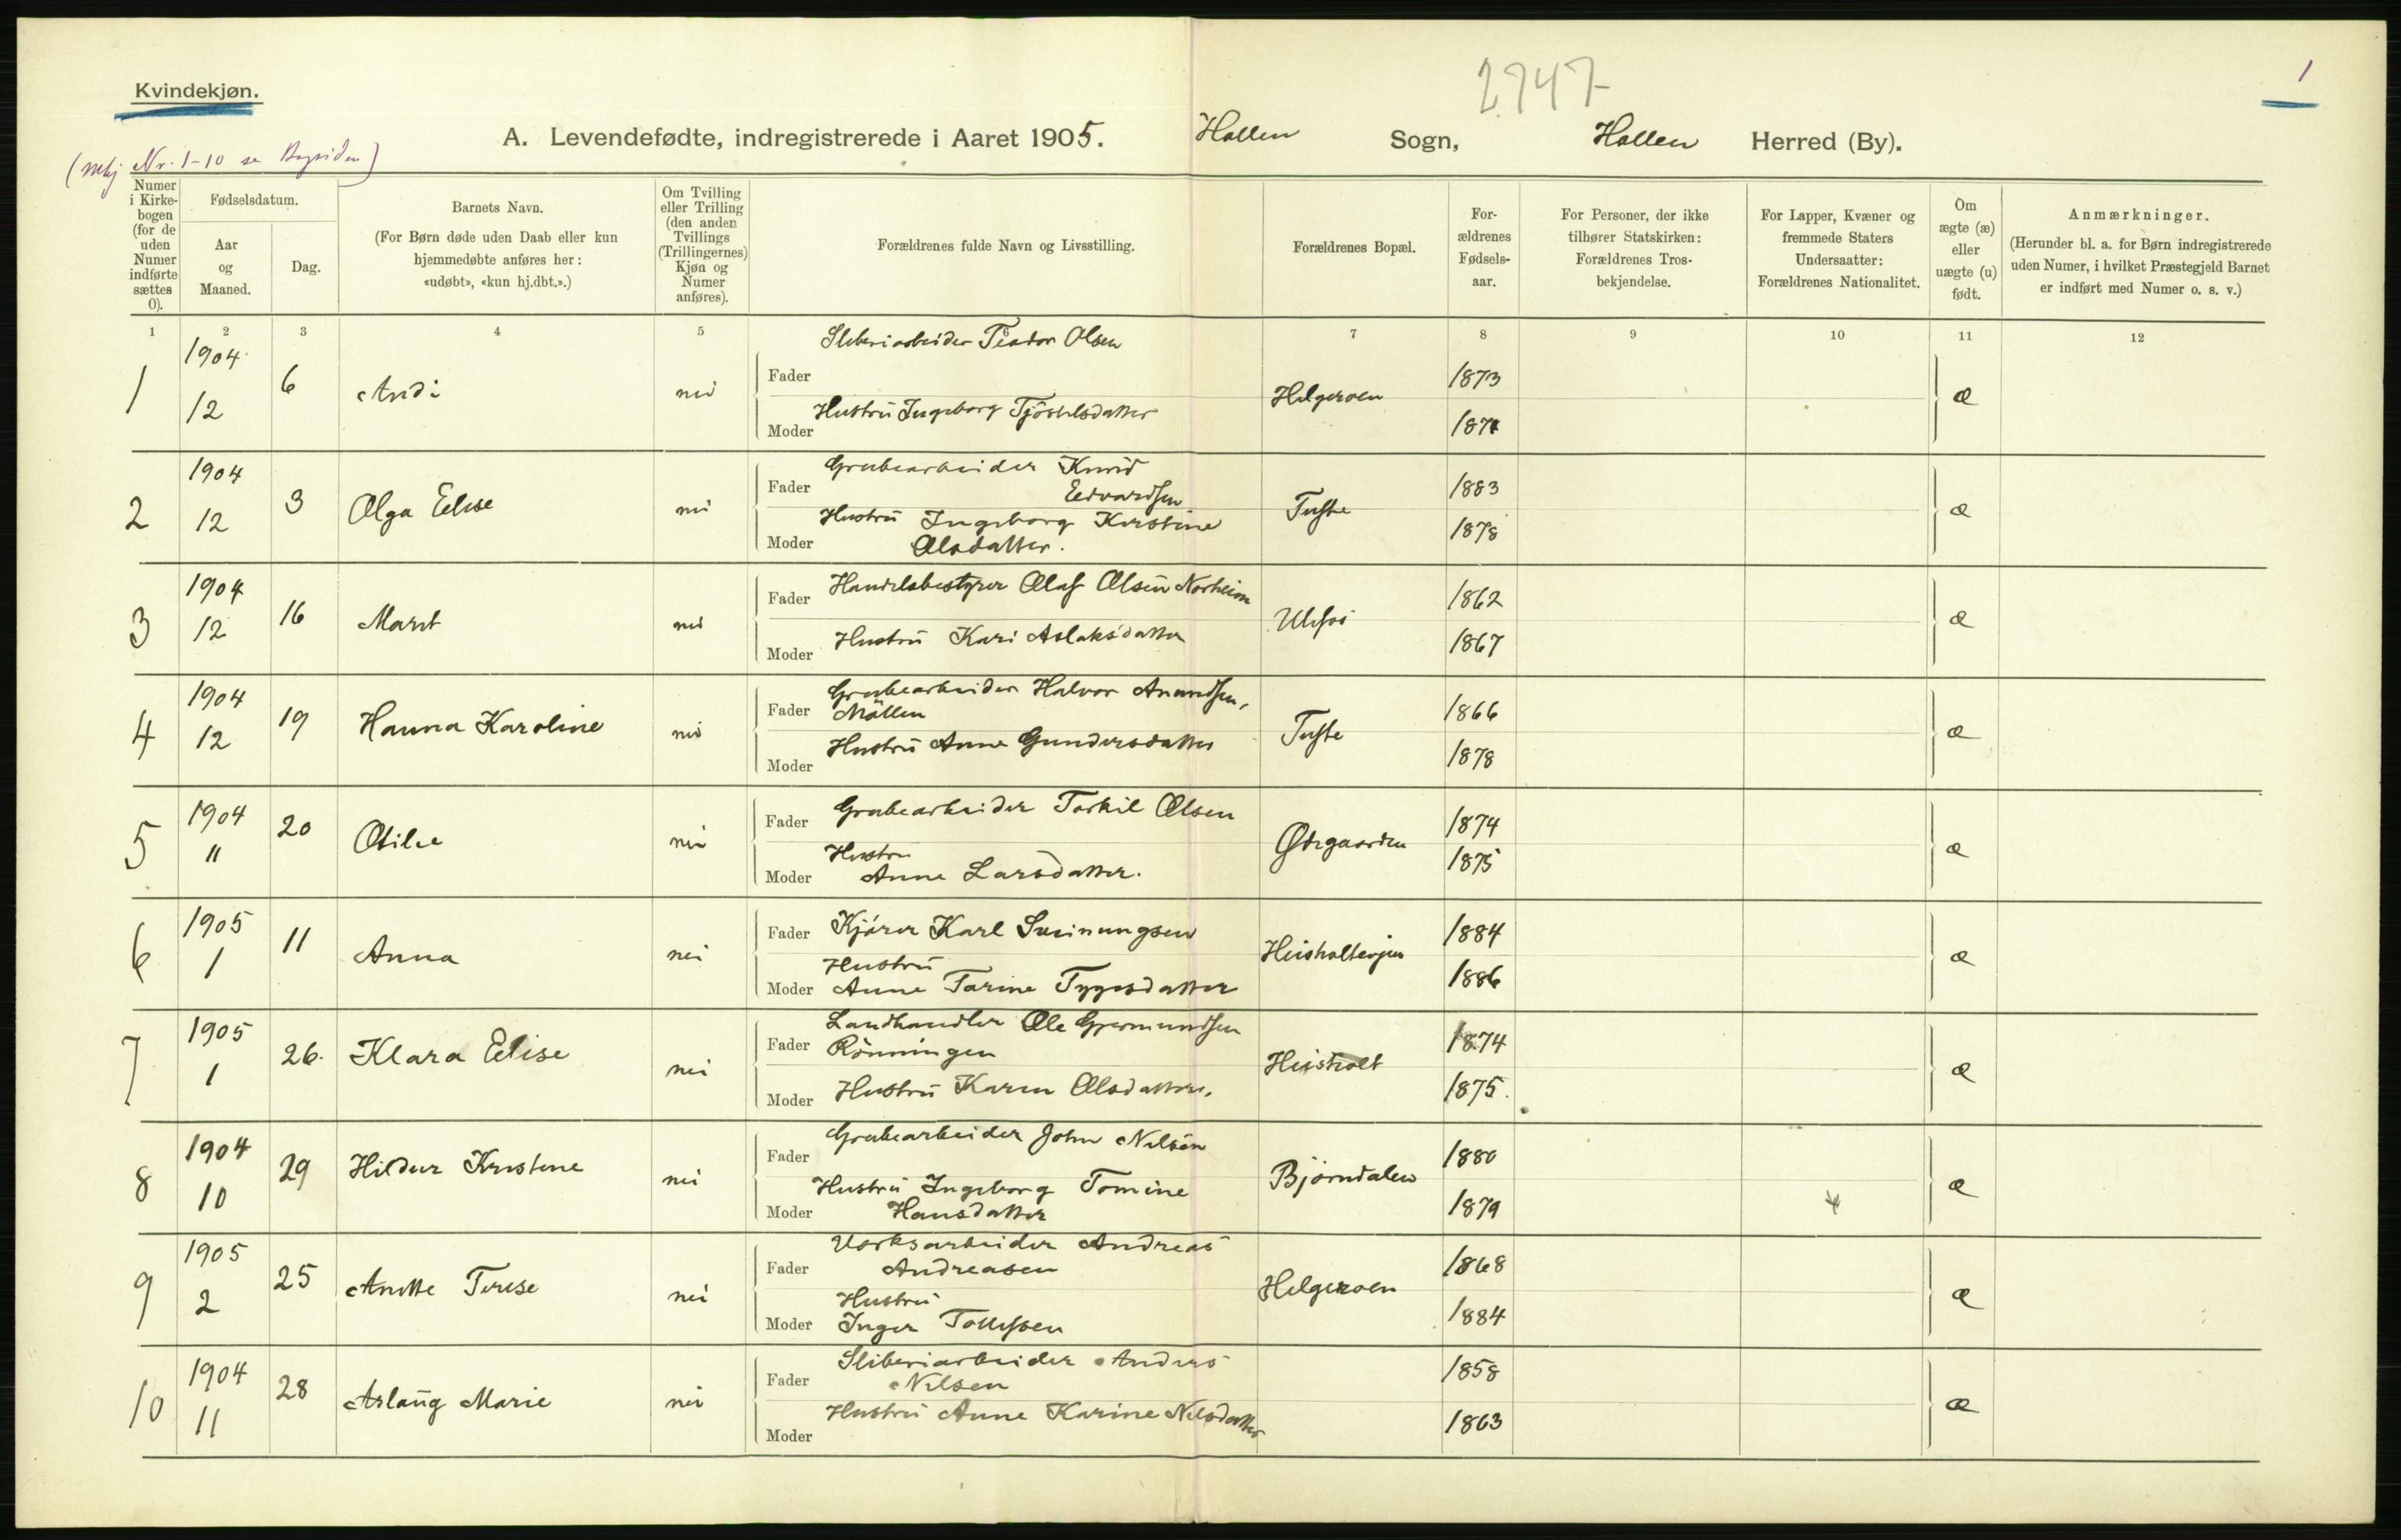 2747
1
Kvindekjøn.
A. Levendefødte, indregistrerede i Aaret 1905. Hollen Sogn, Hollen Herred (By).
Nr. 1-10 se
Numer i Kirke- bogen (for de uden Numer indførte sættes 0).
Fødselsdatum.
Aar og Maaned.
Dag.
Barnets Navn.
(For Børn døde uden Daab eller kun hjemmedøbte anføres her: «udøbt», «kun hj.dbt.».)
Om Tvilling eller Trilling (den anden Tvillings (Trillingernes) Kjøn og Numer anføres).
Forældrenes fulde Navn og Livsstilling.
Forældrenes Bopæl.
For- ældrenes Fødsels- aar.
For Personer, der ikke tilhører Statskirken: Forældrenes Tros- bekjendelse.
For Lapper, Kvæner og fremmede Staters Undersaatter: Forældrenes Nationalitet.
Om ægte (æ) eller uægte (u) født.
Anmærkninger.
(Herunder bl. a. for Børn indregistrerede uden Numer, i hvilket Præstegjeld Barnet er indført med Numer o. s. v.)
1 2 3 4 5 6 7 8 9 10 11 12
1 1904 12 6 Andi nei
Fader Sliberiarbeider Teodor Olsen
Moder Hustru Ingeborg
Helgeroen 1873 1871 æ
2 1904 12 3 Olga Elise nei
Fader Grubearbeider Knud Edvardsen
Moder Hustru Ingeborg Kirstine Olsdatter.
Tufte 1883 1878 æ
3 1904 12 16 Marit nei
Fader Handelsbestyrer Olaf Olsen Norheim
Moder Hustru Kari Aslaksdatter
Ulefos 1862 1867 æ
4 1904 12 19 Hanna Karoline nei
Fader Grubearbeider Halvor Amundsen, Möllen
Moder Hustru Anne Gundersdatter
Tufte 1866 1878 æ
5 1904 11 20 Otilie nei
Fader Grubearbeider Torkil Olsen
Moder Hustru Anne Larsdatter.
Øvregaarden 1874 1875 æ
6 1905 1 11 Anna nei
Fader Kjører Karl Sveinungsen
Moder Hustru Anne Tarine Tygesdatter
1884 1886 æ
7 1905 1 26. Klara Elise nei
Fader Landhandler Ole Gjermundsen Rönningen
Moder Hustru Karen Olsdatter.
Heisholt 1874 1875. æ
8 1904 10 29 Hildur Kristine nei
Fader Grubearbeider John Nilsen
Moder Hustru Ingeborg Tomine Hansdatter
Bjørndalen 1880 1879 æ
9 1905 2 25 Anette Terese nei
Fader Værksarbeider Andreas Andreasen
Moder Hustru Inger Tollefsen
Helgeroen 1868 1884 æ
10 1904 11 28 Aslaug Marie nei
Fader Sliberiarbeider Anders Nilsen
Moder Hustru Anne Karine Nilsdatter
1858 1863 æ